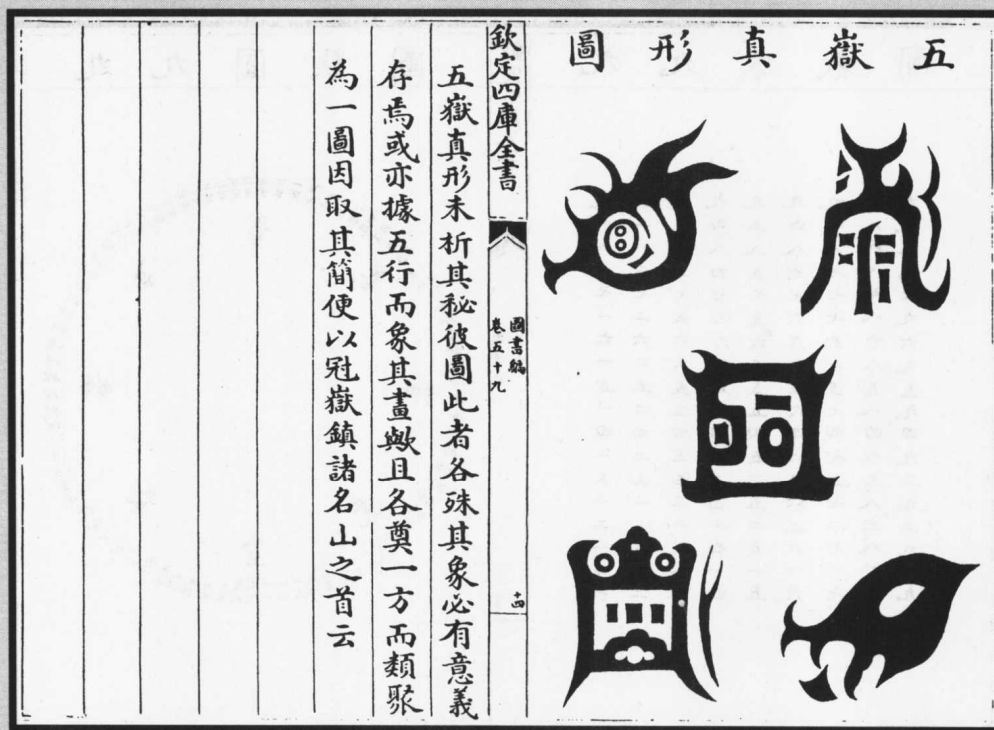 五嶽真形圖
欽定四庫全書
圖書編
卷五十九
十四
五嶽真形未析其秘彼圖此者各殊其象必有意義
存焉或亦據五行而象其畫歟且各奠一方而類聚
為一圖因取其簡便以冠嶽鎮諸名山之首云